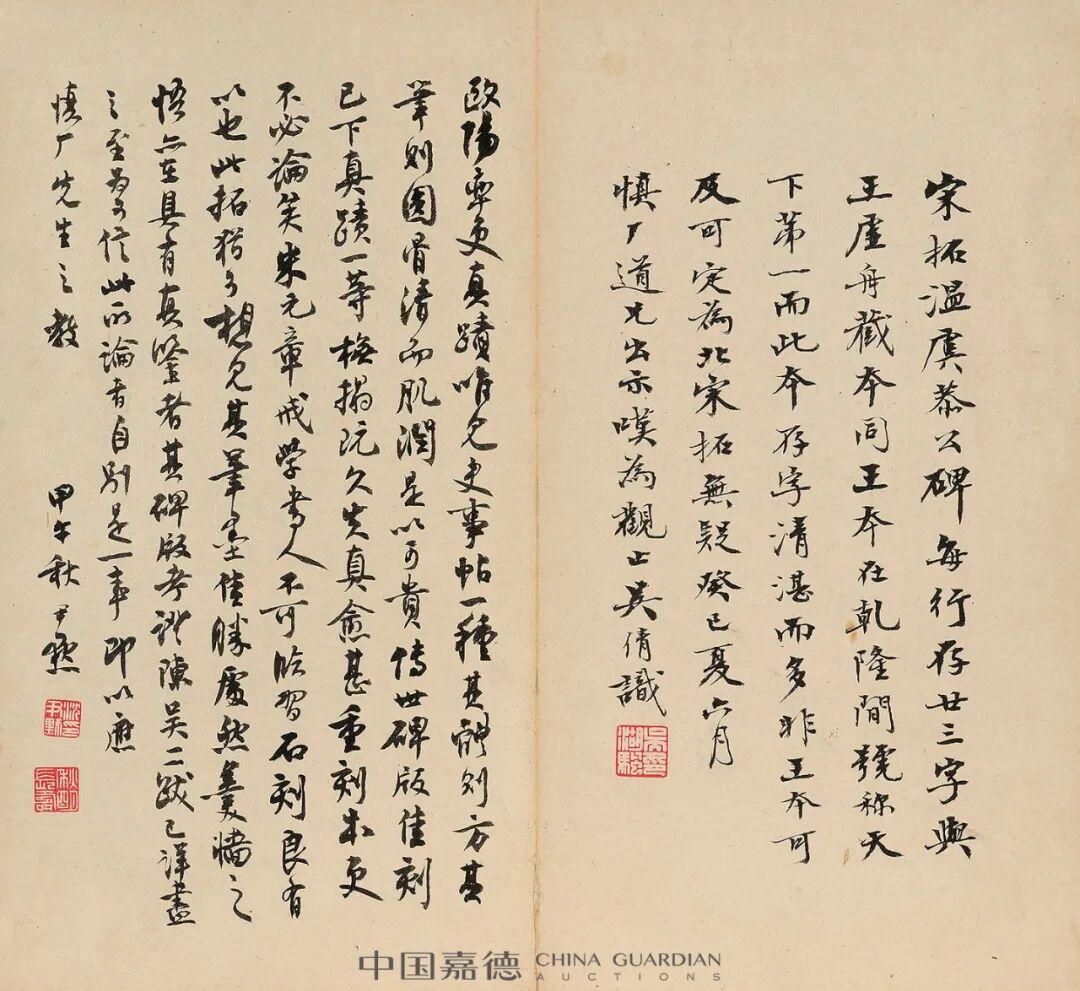 宋拓温虞恭公碑每行存廿三字與
王虛舟藏本同王本在乾隆間號称天
下第一而此本存字清湛而多非王本可
及可定為北宋拓無疑癸巳夏六月
慎厂道兄出示嘆為觀止吴倩識
吴湖颿
歐陽率更真蹟唯見史事帖一種其體則方其
筆則圆骨清而肌潤是以可貴傳世碑版佳刻
已下真蹟一等橅搨既久失真愈甚重刻本更
不必論矣米元章戒学書人不可临習石刻良有
以也此拓猶可想見其筆墨佳勝處然羹牆之
悟亦在具有真鉴者其碑版考證陳吴二跋已详盡
之至為可信此所論者自别是一事即以應
慎厂先生之教
甲午秋尹默
沈尹默
中国嘉德 CHINA GUARDIAN
AUCTIONS